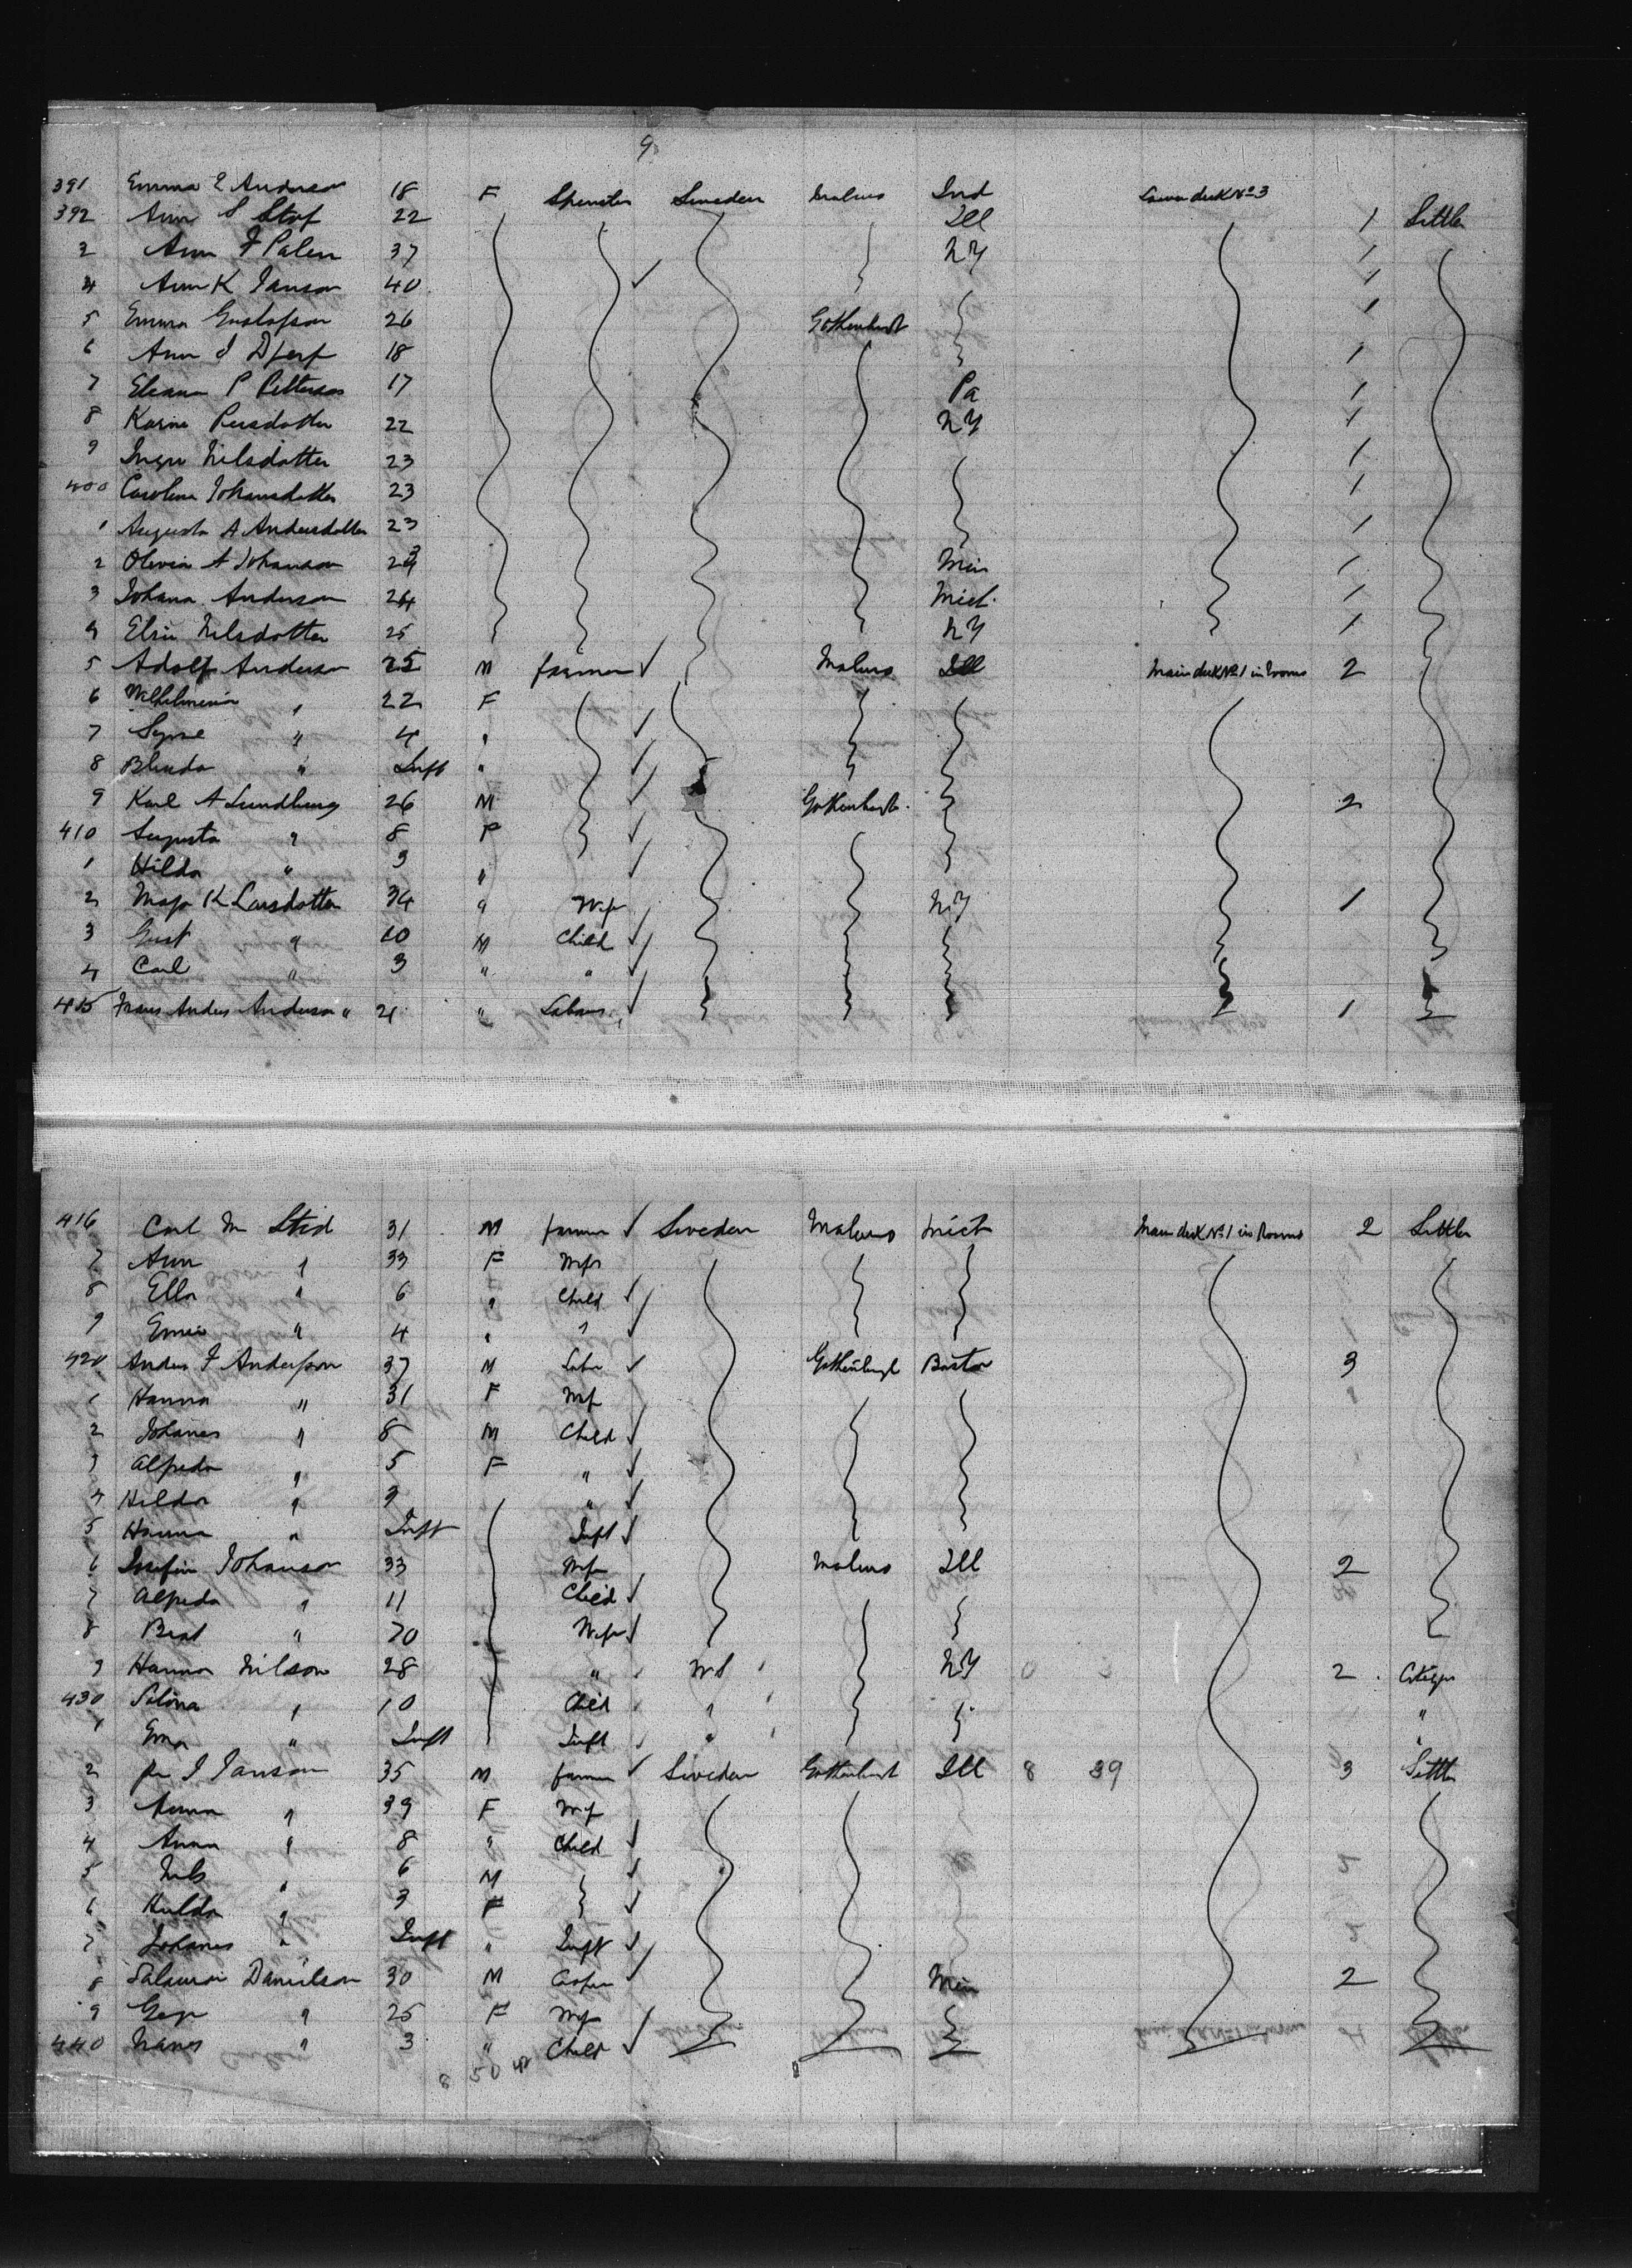 9
391 Emma E Anderson 18 F Spinster Sweden Malmo Ind Lower deck No 3
392 Ann S Stof 22 Ill 1 Settler
3 Ann F Palen 37 NY 1
4 Ann K Janson 40 1
5 Emma Gustafson 26 Gothenburg 1
6 Ann 18 1
7 P Petterson 17 Pa 1
8 Karin Persdotter 22 NY 1
9 Inger Nilsdotter 23 1
400 Carolina Johansdotter 23 1
1 Augusta A Andersdotter 23 1
2 Olivia A Johanson Min 1
3 Johana Anderson 24 Mich 1
4 Elsie Nilsdotter 25 NY 1
5 Adolf Anderson 25 M farmer Malmo Ill Main deck No 1 in rooms 2
6 Wilhelmina " 22 F
7 Signe " 4 "
8 Blenda " Inft "
9 Karl A Lundberg 26 M Gothenburg 2
410 Augusta " 8 F
1 Hilda " 3 "
2 Maja K Larsdotter 34 " Wife NY 1
3 Gust " 10 M Child
4 Carl " 3 " "
415 Frans Anders Anderson " 21 " Labour 1
416 Carl M Stid 31 M farmer Sweden Malmo Mich Main deck No 1 in Rooms 2 Settler
7 Ann " 33 F Wife
8 Ella " 6 " Child
9 " 4 " "
420 Anders F Anderson 37 M Labr Gothenburg Boston 3
1 Hanna " 31 F Wife
2 Johanes " 8 M Child
3 Alfreda " 5 F "
4 Hilda " 3 "
5 Hanna " Inft Inft
6 Josefin Johanson 33 Wife Malmo Ill 2
7 Alfreda " 11 Child
8 " 70 Wife
9 Hanna Nilson 28 " US NY 0 3 2 Citizen
430 Selina " 10 Child " "
1 Ema " Inft Inft " "
2 pr J Janson 35 M farmer Sweden Gothenburg Ill 8 39 3 Settler
3 Anna " 39 F Wife
4 Anna " 8 " Child
5 Nils " 6 M
6 Hulda " 3 F
7 Johanes " Inft " Inft
8 Danielson 30 M Min 2
9 " 25 F Wife
440 " 3 " Child
8 50